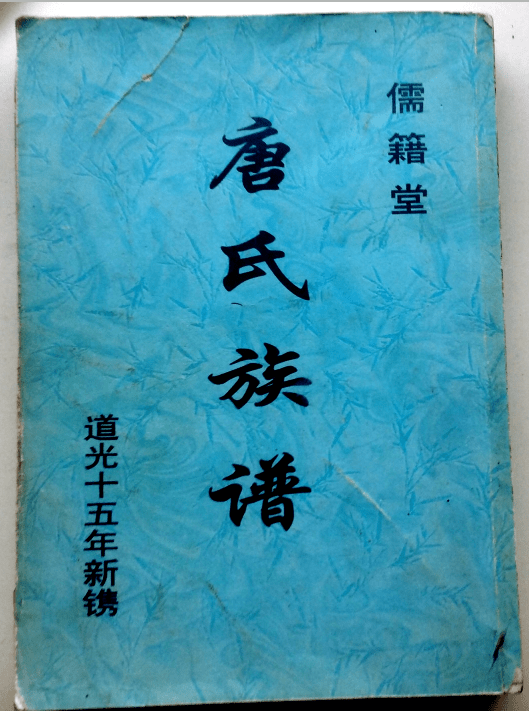 儒籍堂
唐氏族谱
道光十五年新镌